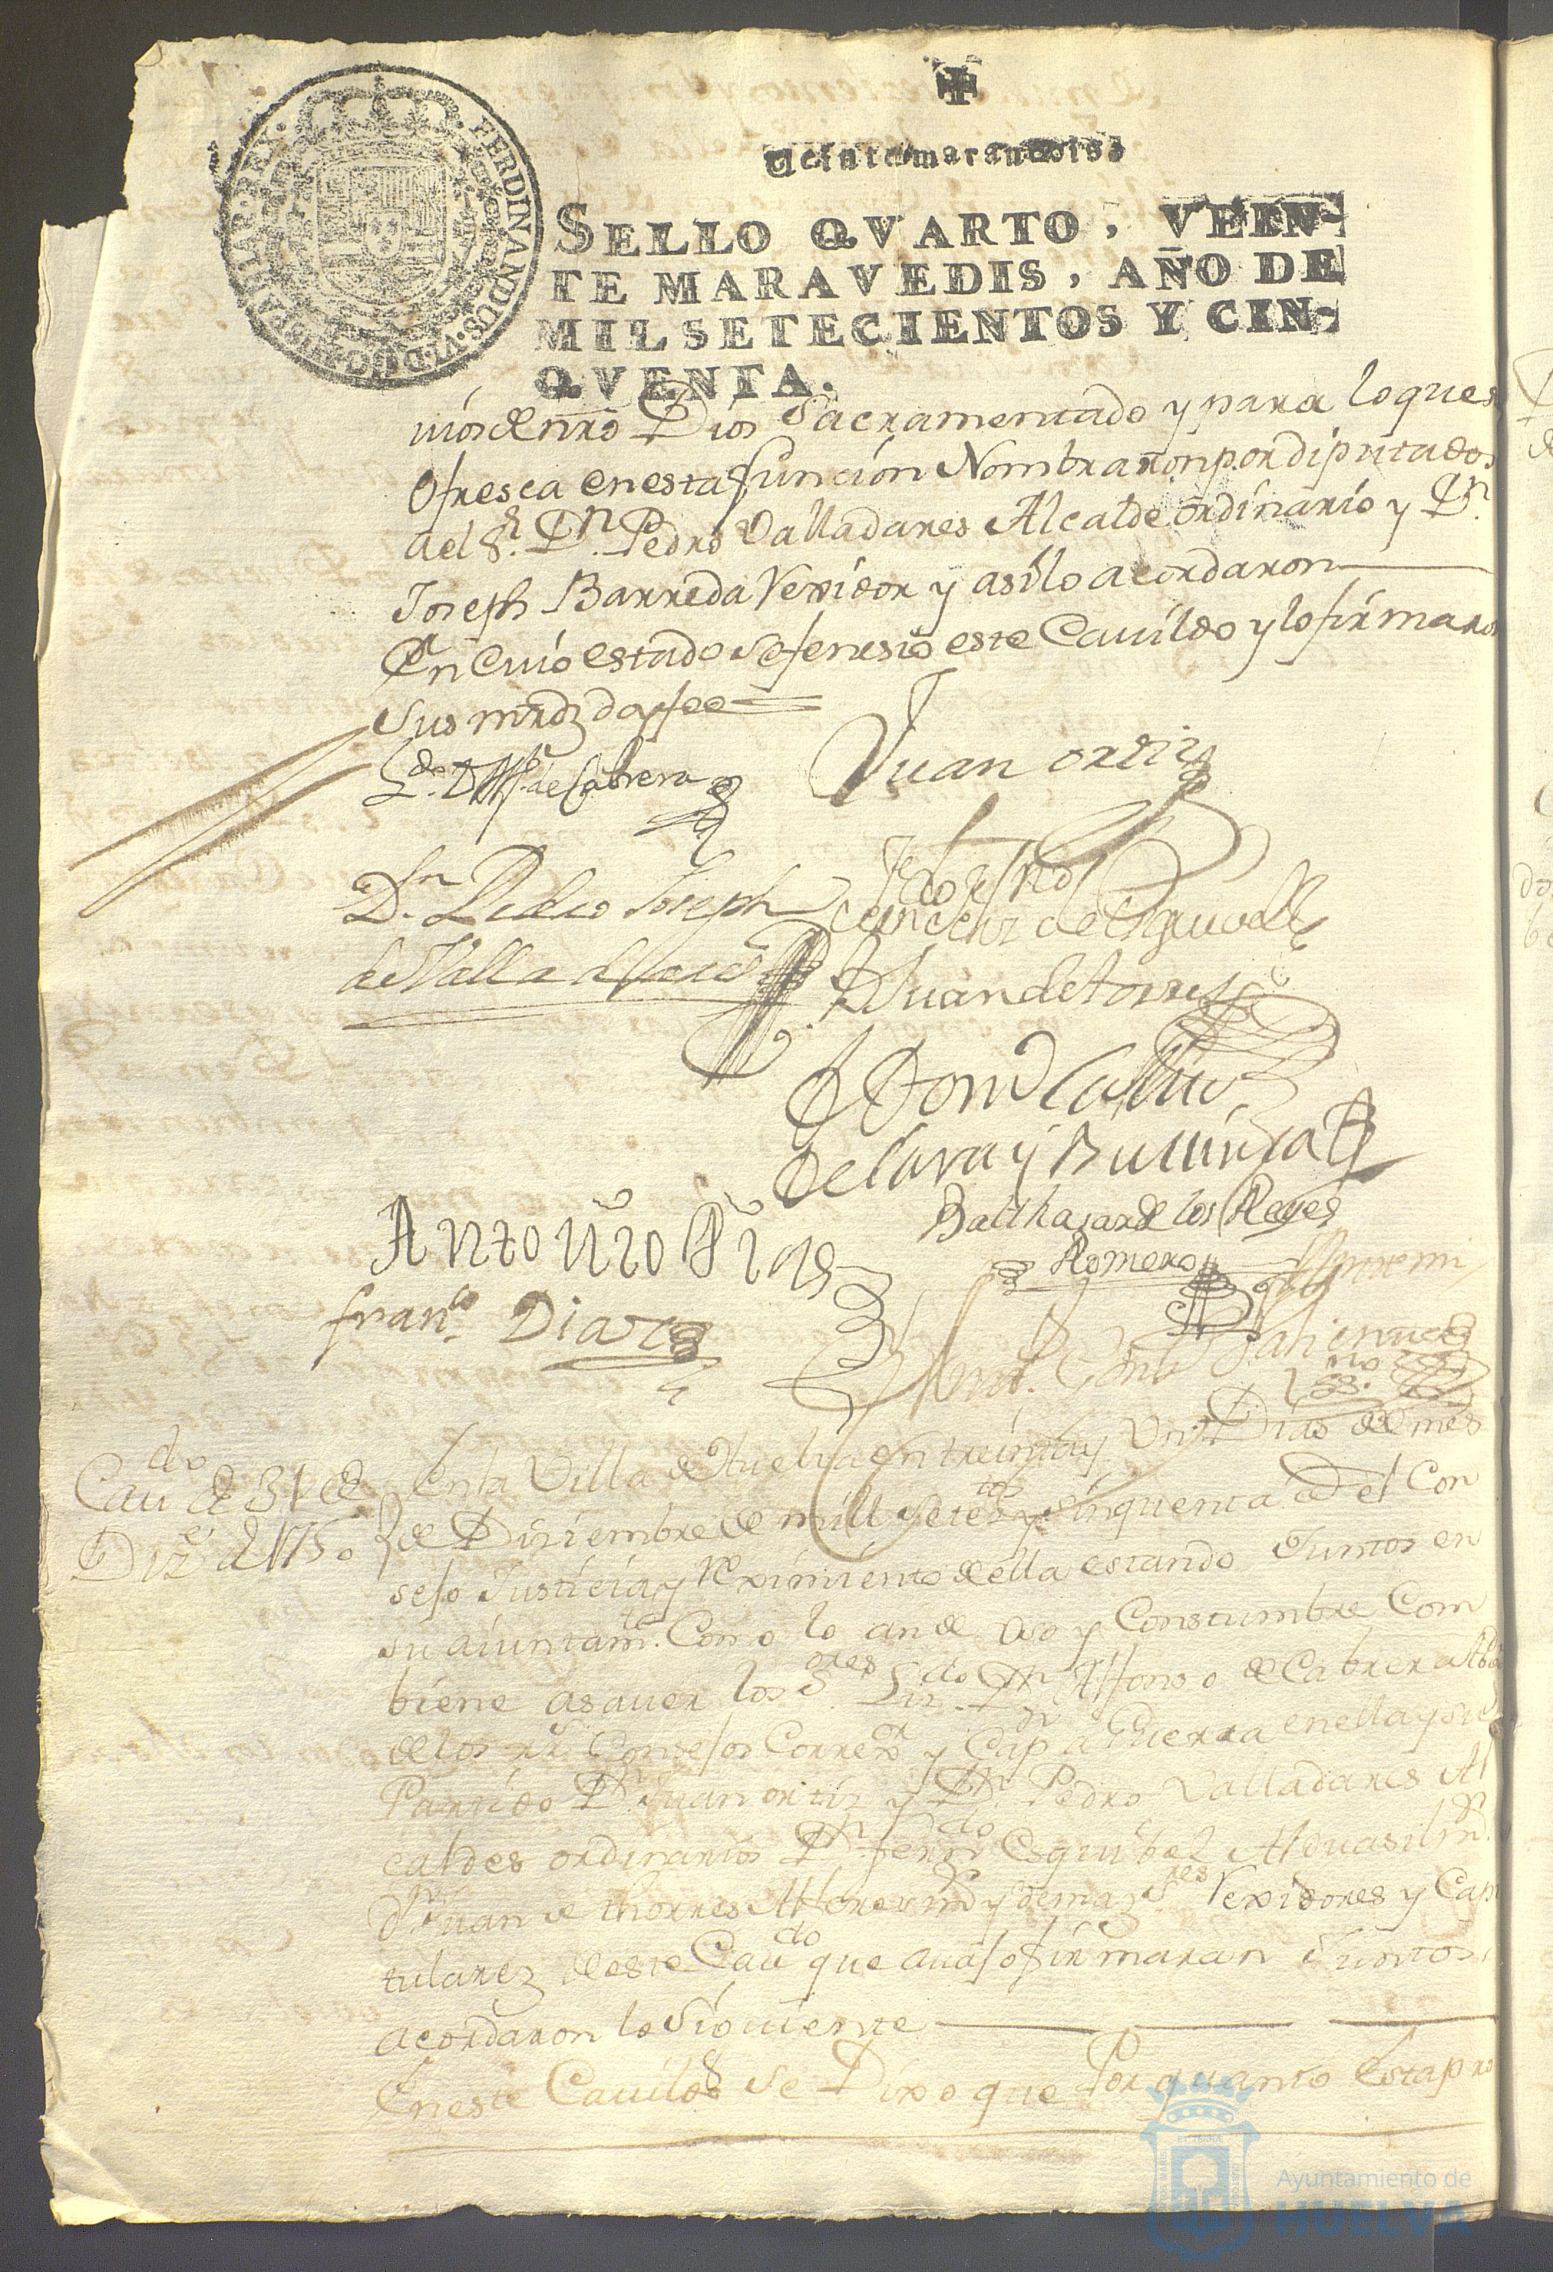 FERDINANDUS·VI·D·G·HISPANIAR·REX·
Veinte maravedis
SELLO QVARTO, VEIN-
TE MARAVEDIS, AÑO DE
MIL SETECIENTOS Y CIN-
QVENTA.
nro Dios Sacramentado y para lo que se
Ofresca en esta funcion Nombraron por diputados
a el Sr. Dn. Pedro Valladares Alcalde ordinario y Dn.
Joseph Barreda Rexidor y asi lo acordaron
En cuio estado se fenesio este Cavildo y lo firmaron
sus mrds doy fee
Ldo. Dn Alfo. de Cabrera
Juan ortiz
Dn. Pedro Joseph
de Valladares
Juan de torres
Antonio Rioz
Balthasar de los Reyes
Romero
Ante mi
Franco. Diaz
Cavdo de 31 de
Dizre de 1750
En la Villa de Huelva en treinta y Un Dias del mes
de Diziembre de mill setetos y sinquenta as. el Con
sejo Justicia y Reximiento de ella estando Juntos en
su aiuntamto. Como lo an de Uso y Constumbre Com
biene asaver los Sores. Lizdo. Dn Alfonso de Cabrera Abdo
de los Rs. Consejos Correxor y Capn a Guerra en ella y su
Partido Dn Juan ortiz y Dn Pedro Valladares Al
caldes ordinarios Dn Ferndo Esquibel Alguasil mr.
Dn Juan de thorres Alferez mr y demaz Sres Rexidores y Capi
tularez de este Cavdo que avajo firmaran Juntos
acordaron lo Siguiente
En este Cavildo se Dixo que Por quanto Esta pro
Ayuntamiento de
HUELVA